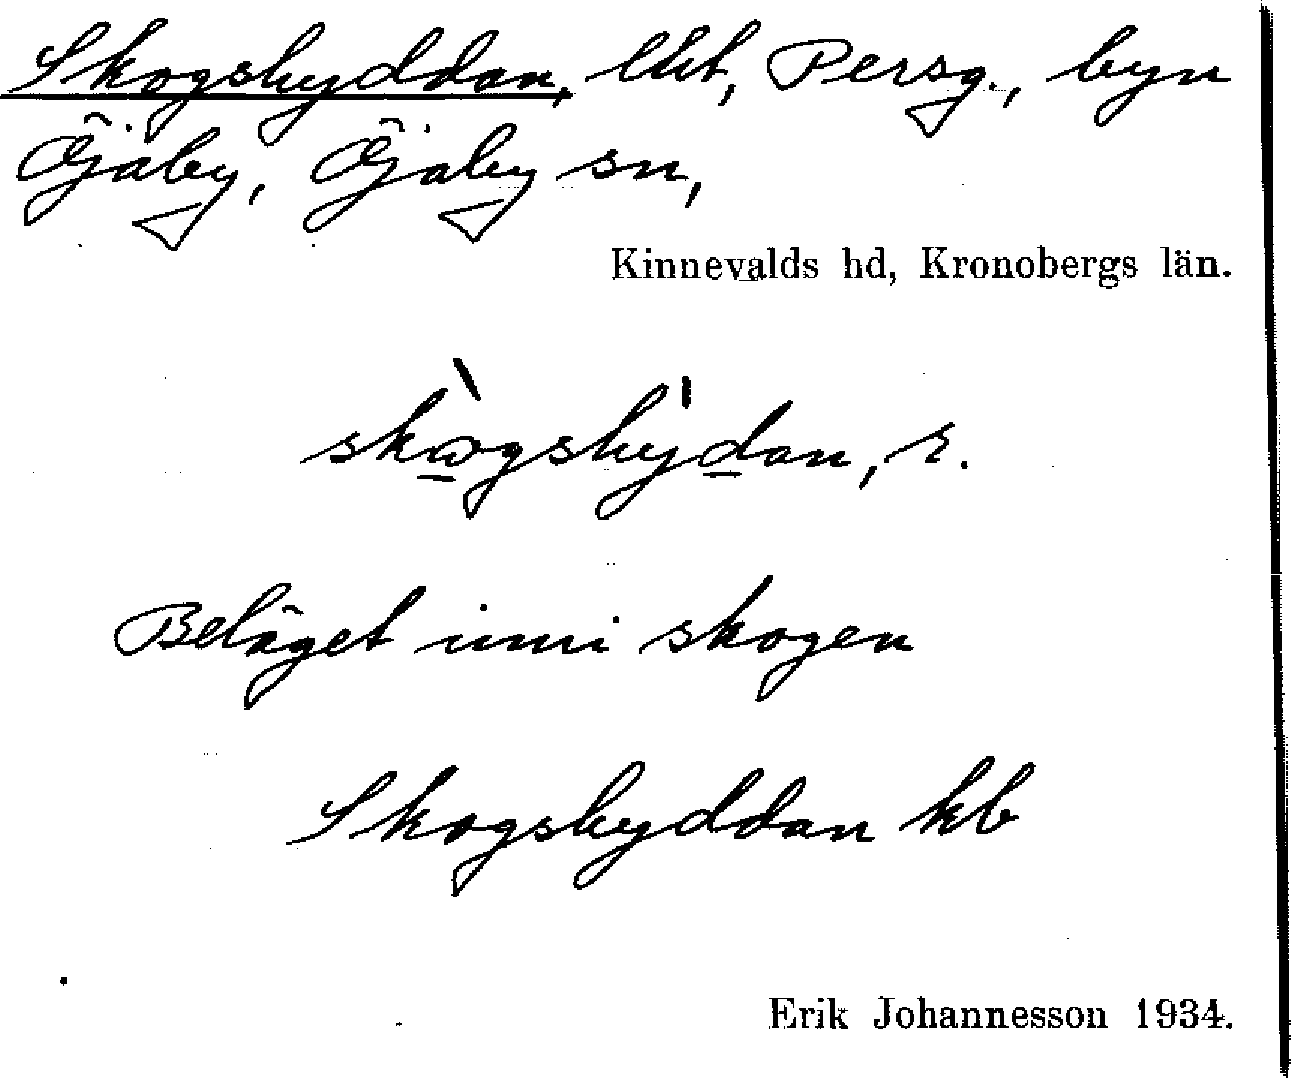 Skogshyddan, lht, Persg., byn
Öjaby, Öjaby sn,
Kinnevalds hd, Kronobergs län.
skὼ̲gshy̍d̲an, r.
Beläget inni skogen
Skogshyddan kb
Erik Johannesson 1934.